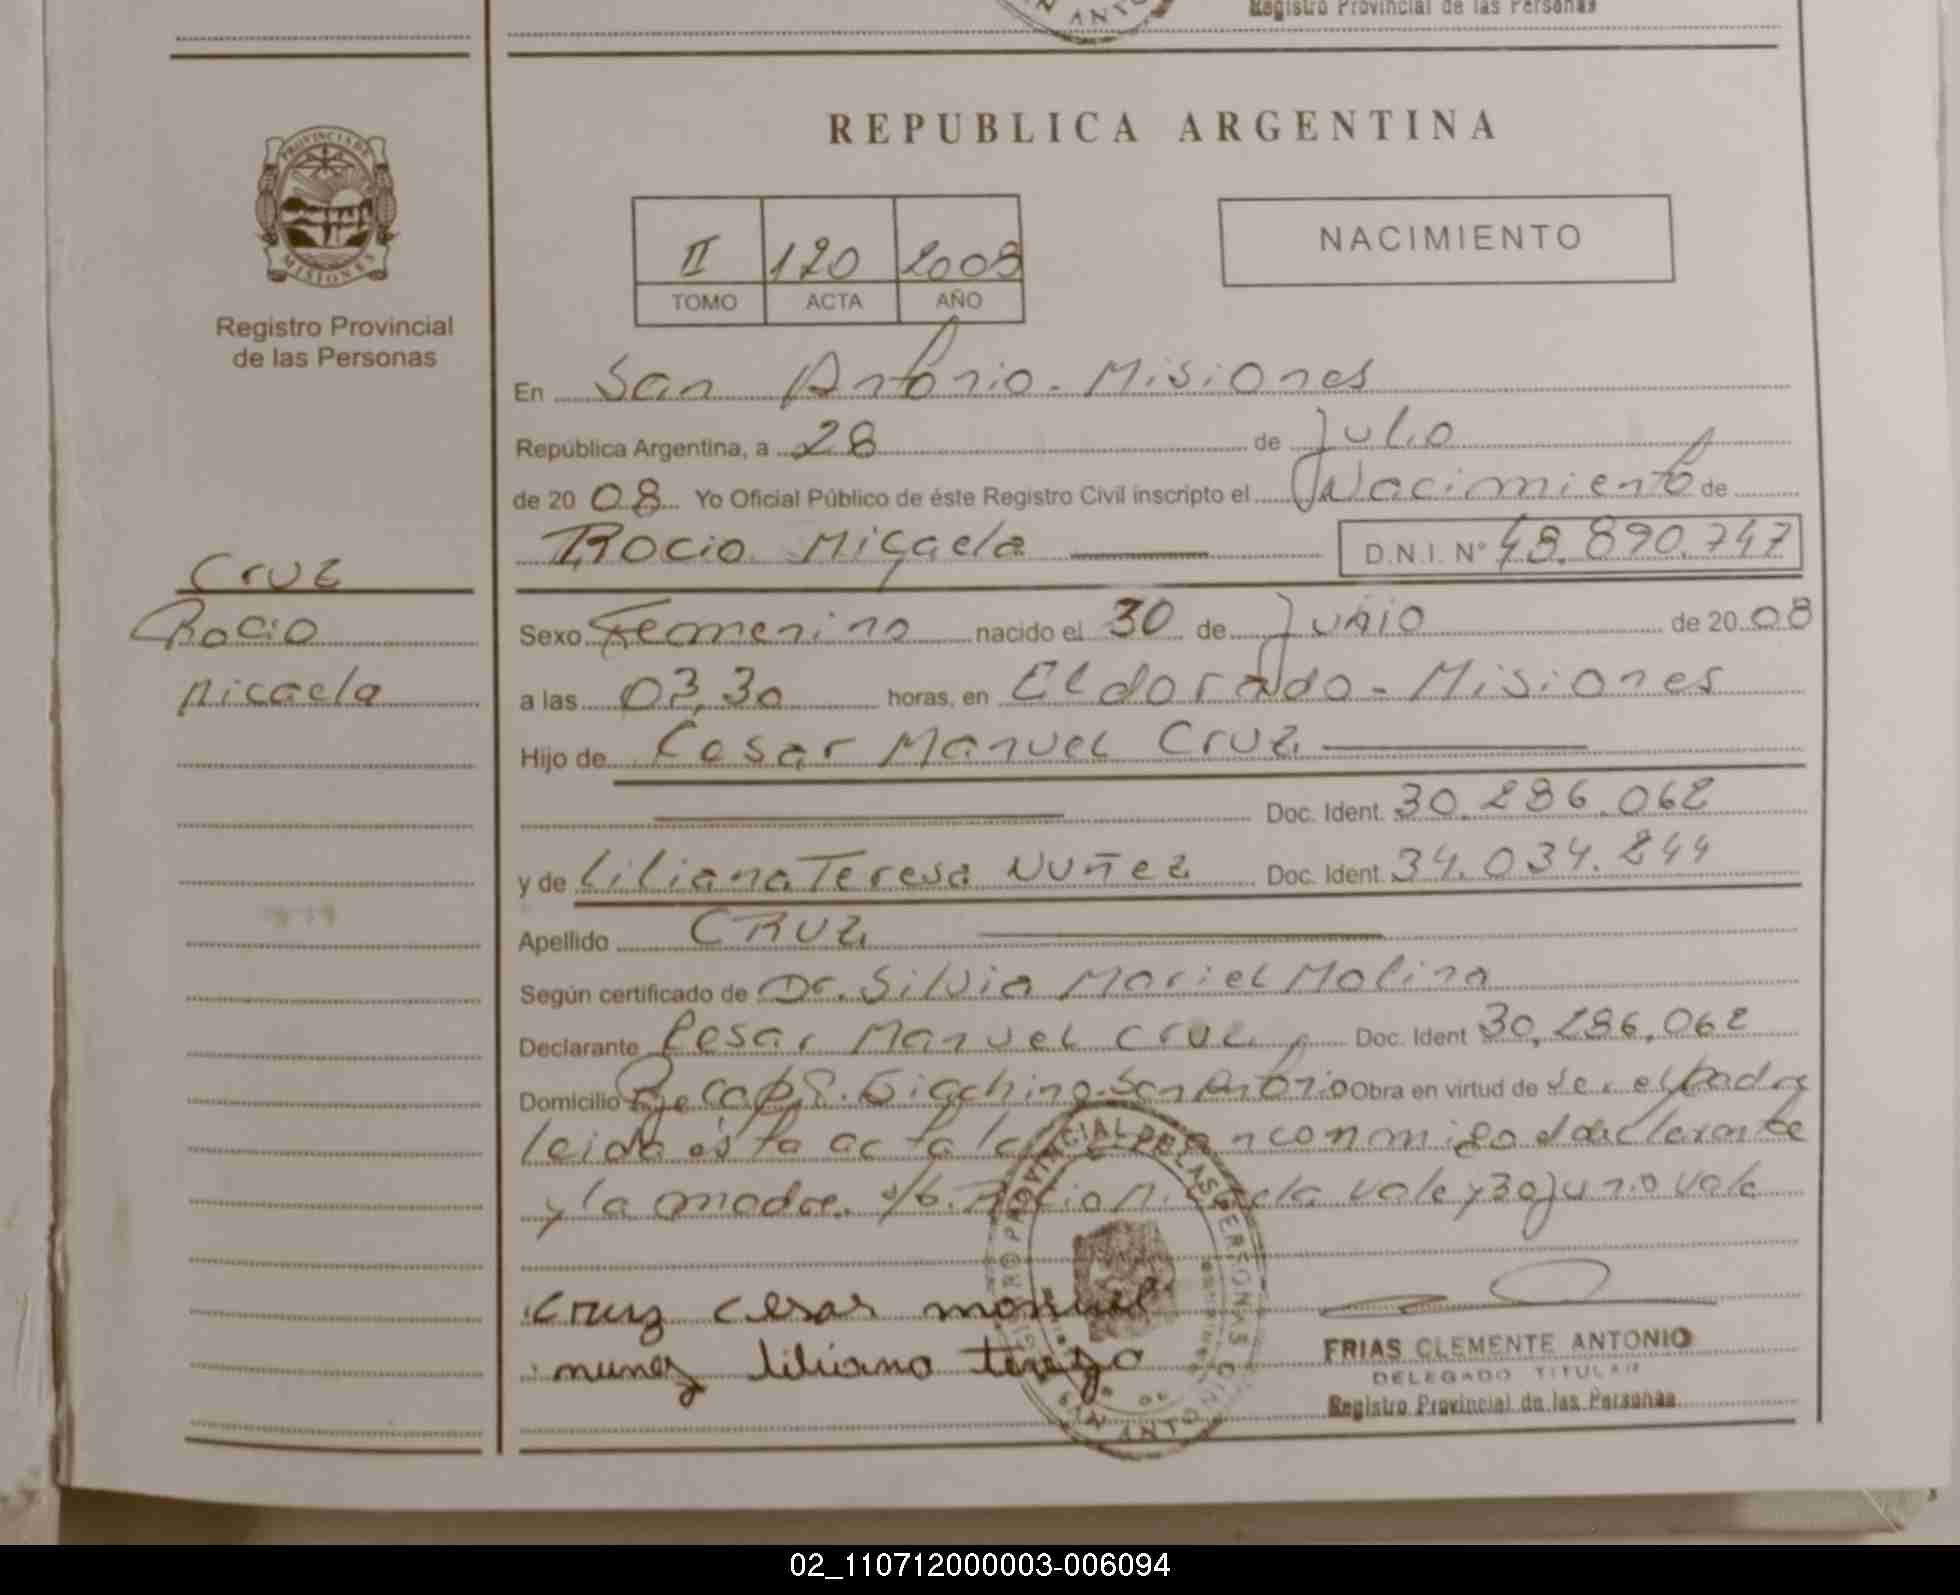 Registro Provincial de las Personas
REPUBLICA ARGENTINA
PROVINCIA DE MISIONES
Registro Provincial
de las Personas
II 120 2008
TOMO ACTA AÑO
NACIMIENTO
En San Antonio - Misiones
República Argentina, a 28 de Julio
de 20 08 Yo Oficial Público de éste Registro Civil inscripto el Nacimiento de
Rocio Micaela D.N.I. Nº 48.890.747
Cruz
Rocio
Micaela
Sexo Femenino nacido el 30 de Junio de 20 08
a las 03,30 horas, en Eldorado - Misiones
Hijo de Cesar Manuel Cruz
Doc. Ident. 30.286.062
y de Liliana Teresa Nuñez Doc. Ident. 34.034.244
Apellido CRUZ
Según certificado de Dr. Silvia Mariel Molina
Declarante Cesar Manuel Cruz Doc. Ident 30.286.062
Domicilio San Antonio Obra en virtud de ser el padre
leida esta acta la conmigo el declarante
y la madre. s/b. Rocio Micaela vale y 30 junio vale
cruz cesar manuel
nunez liliana tereza
FRIAS CLEMENTE ANTONIO
DELEGADO TITULAR
Registro Provincial de las Personas
02_110712000003-006094